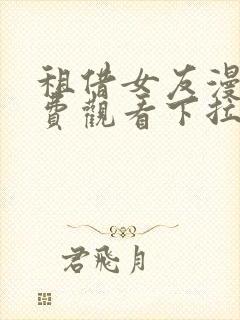 租借女友漫
費觀看下拉
君飛月